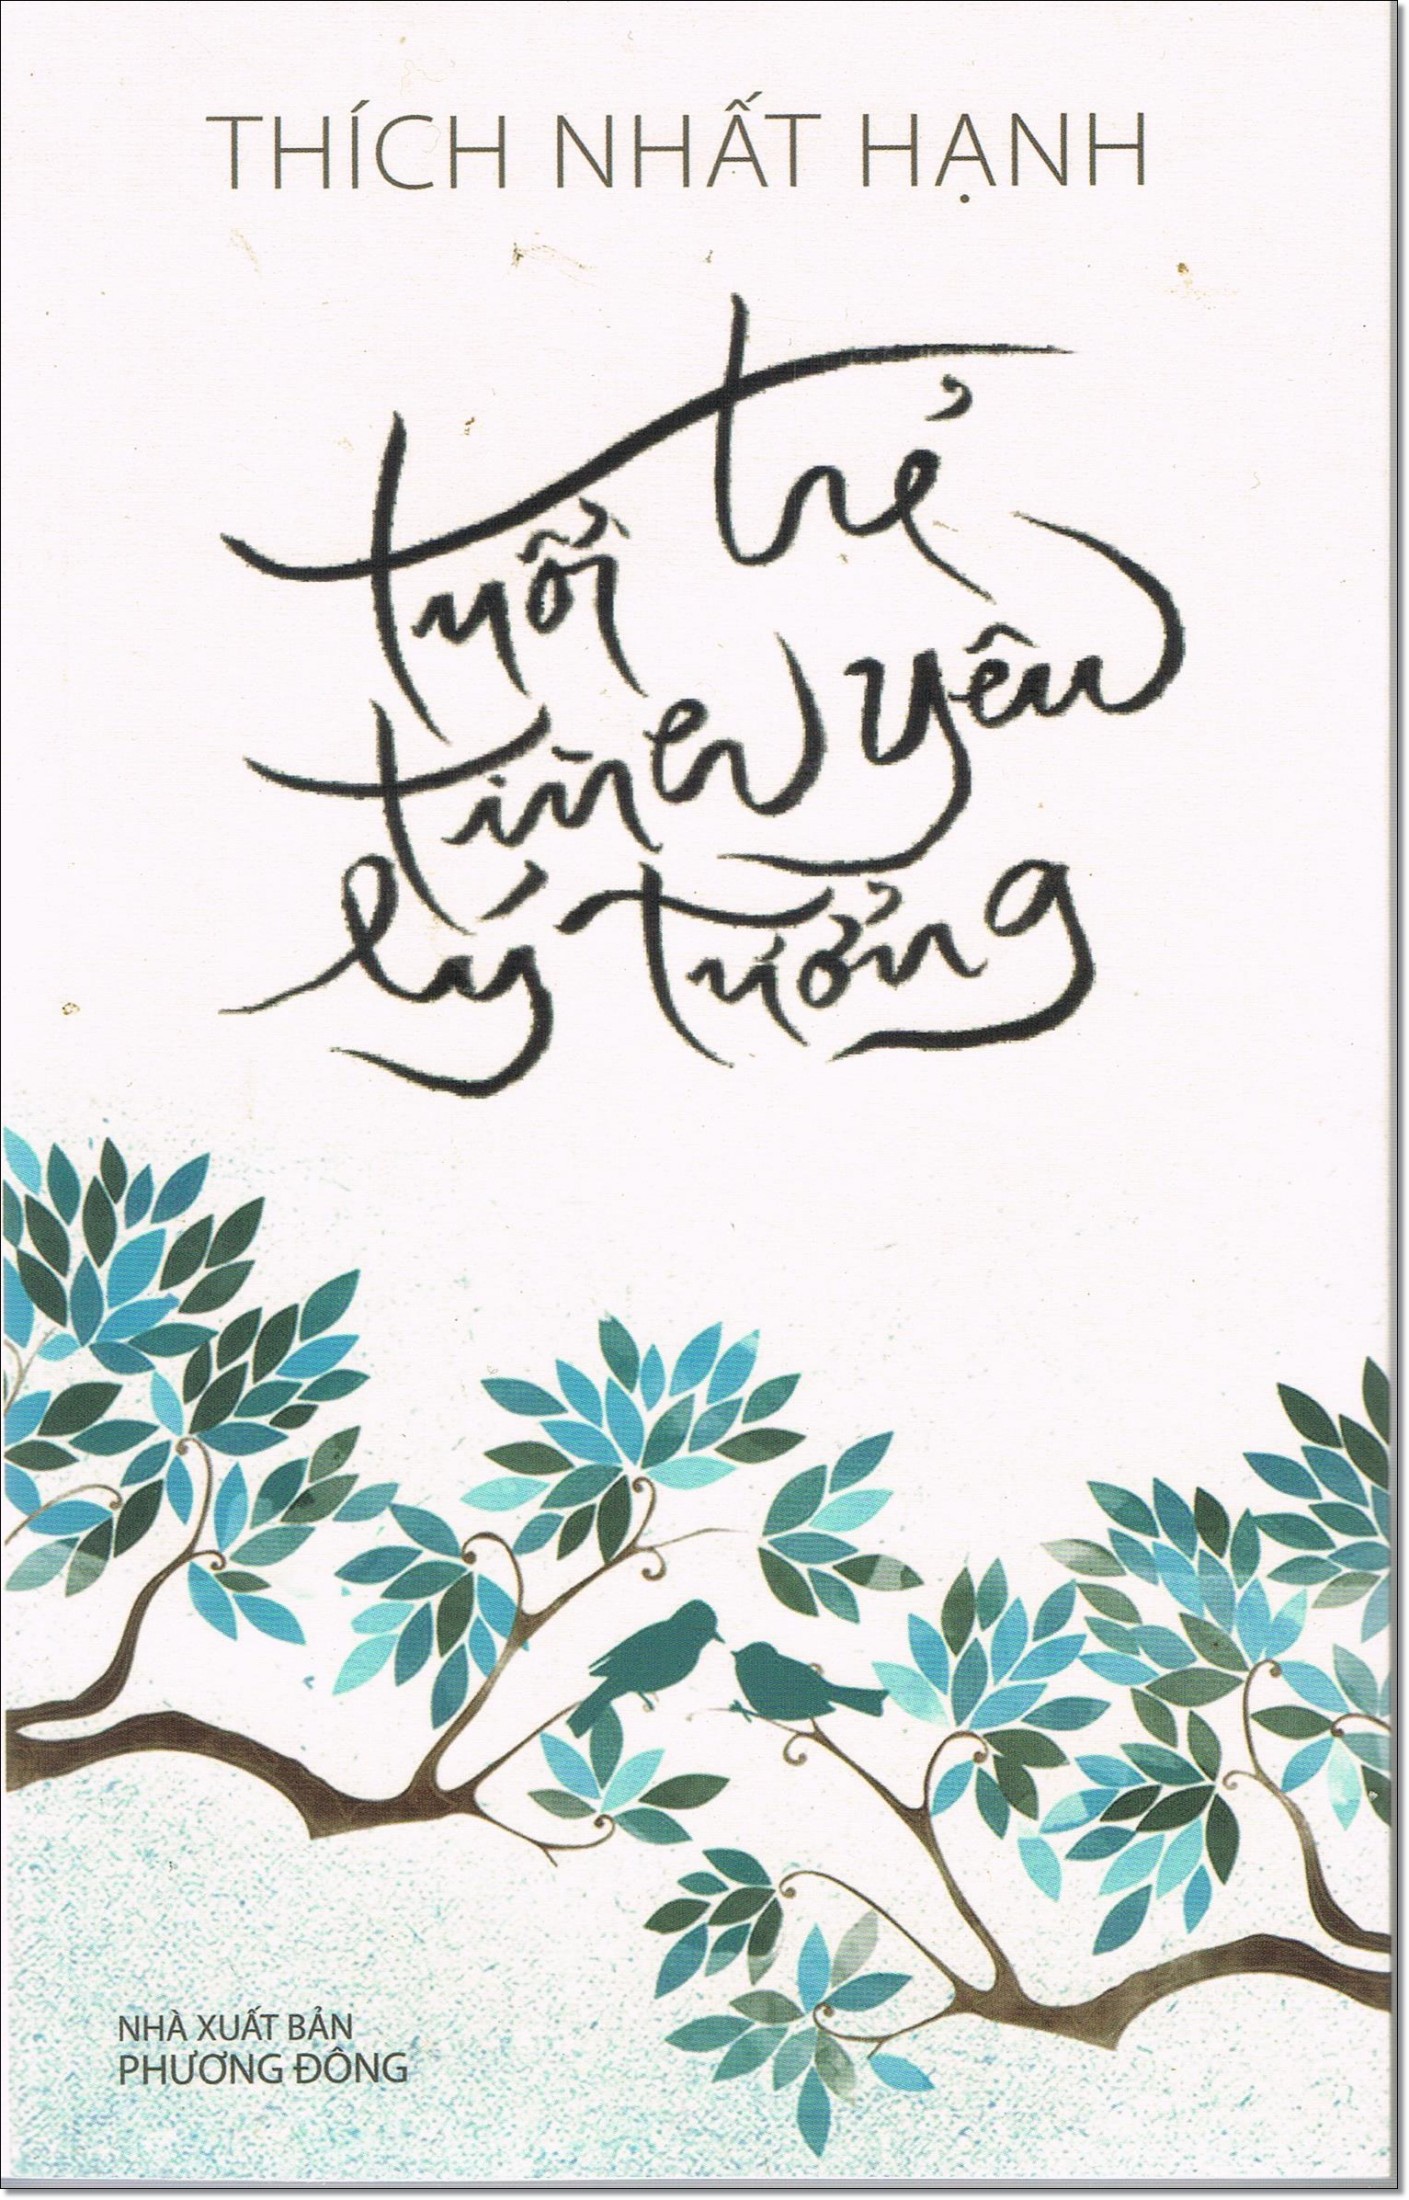 THÍCH NHẤT HẠNH
tuổi trẻ
tình yêu
lý tưởng
NHÀ XUẤT BẢN
PHƯƠNG ĐÔNG